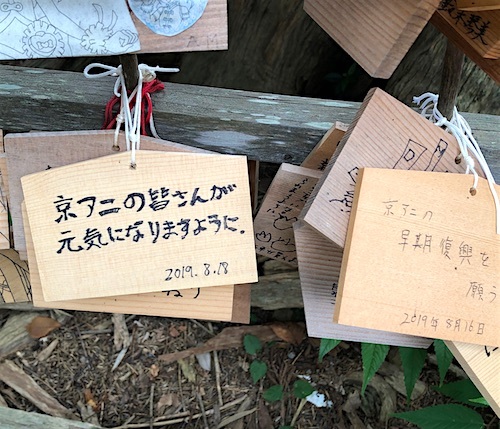 京アニの皆さんが
元気になりますように.
2019.8.18
京アニの
早期復興を
願う
2019年8月16日